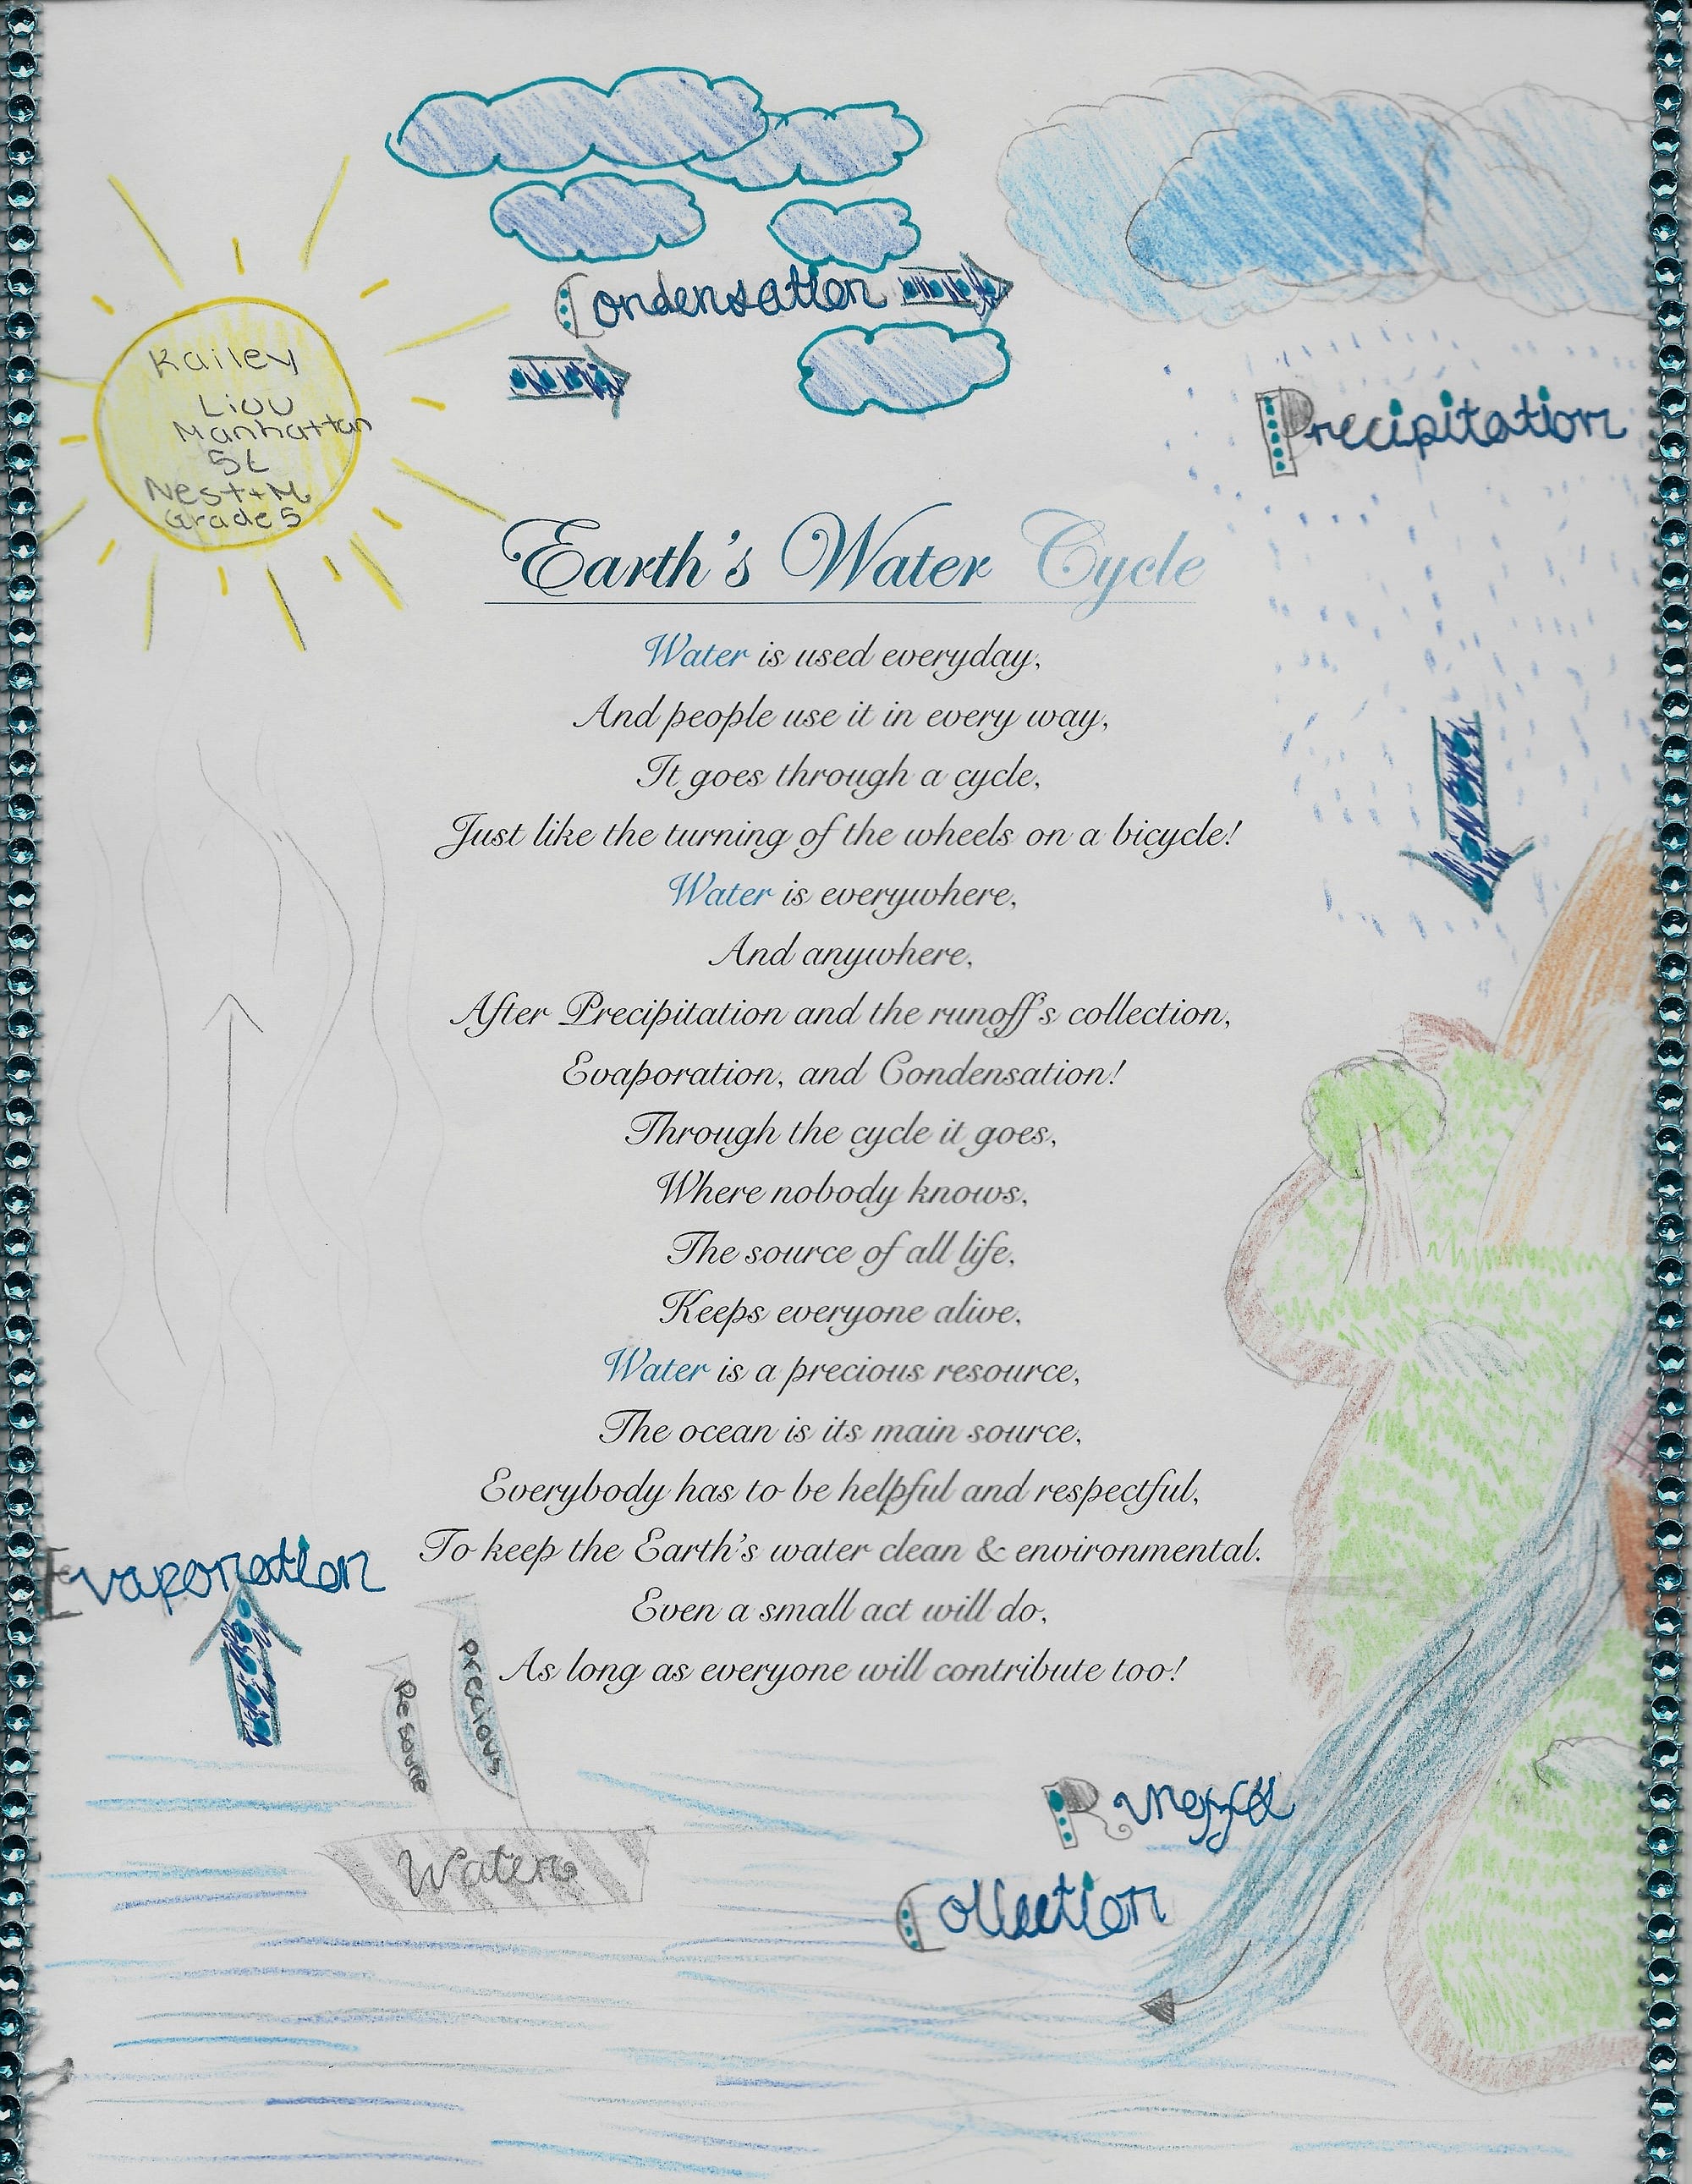 Condensation
Precipitation
Kailey
Liou
Manhattan
5L
Nest+M
Grade 5
Earth's Water Cycle
Water is used everyday,
And people use it in every way,
It goes through a cycle,
Just like the turning of the wheels on a bicycle!
Water is everywhere,
And anywhere,
After Precipitation and the runoff's collection,
Evaporation, and Condensation!
Through the cycle it goes,
Where nobody knows,
The source of all life,
Keeps everyone alive,
Water is a precious resource,
The ocean is its main source,
Everybody has to be helpful and respectful,
To keep the Earth's water clean & environmental.
Even a small act will do,
As long as everyone will contribute too!
Evaporation
Precious
Resource
Water
Runoff
Collection